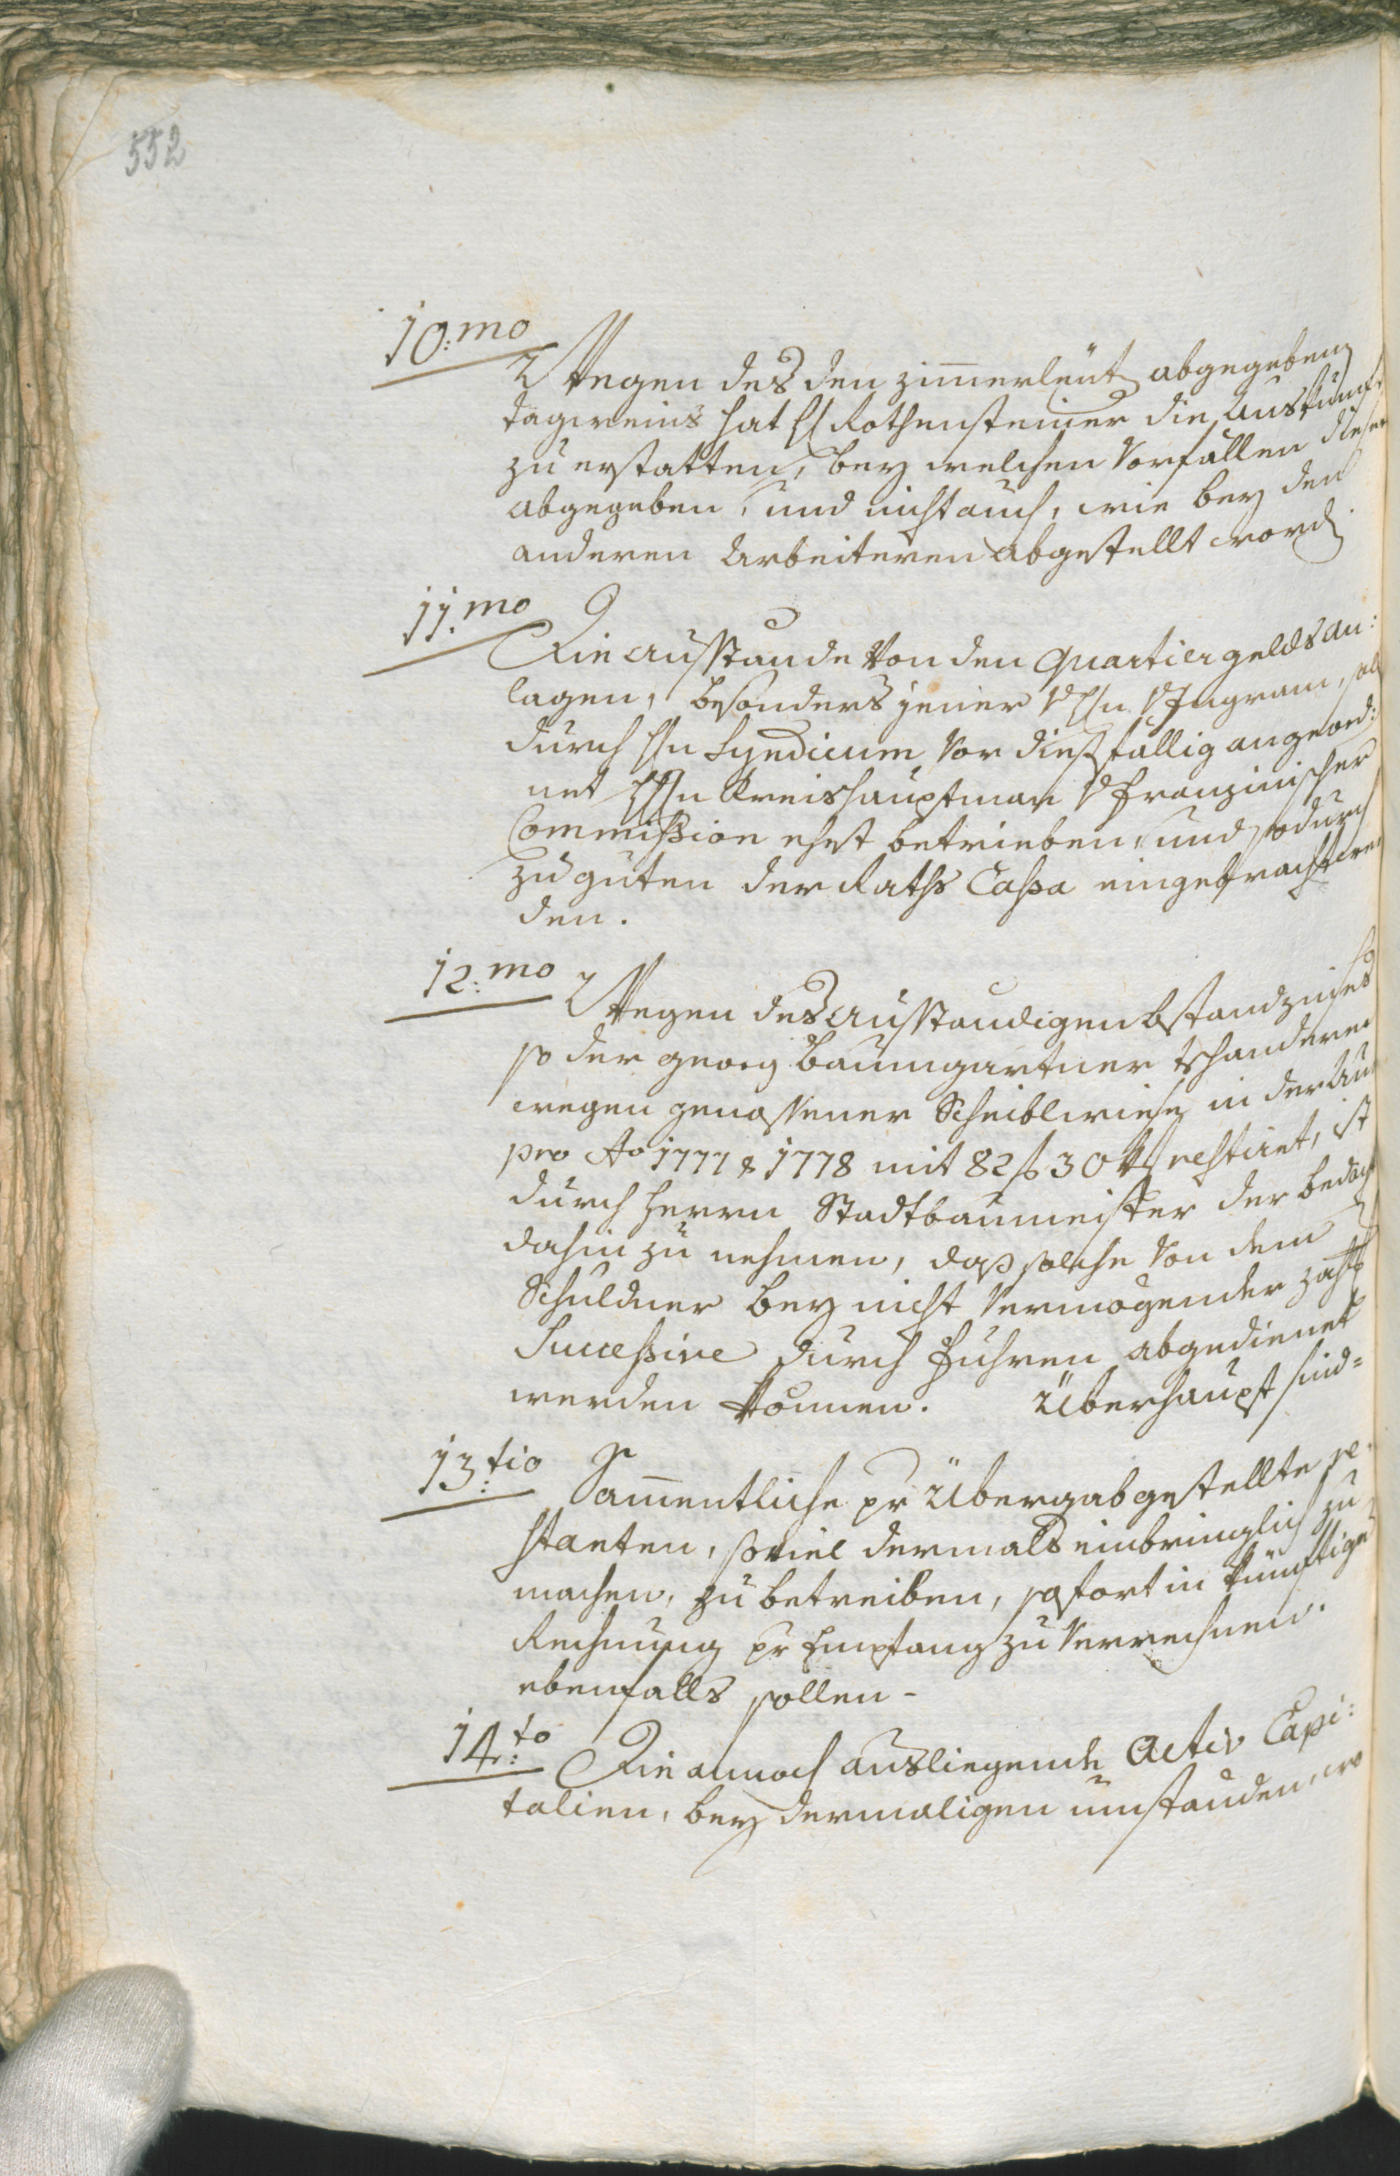 552
10:mo
Wegen des den zimerleüt abgegeben
tagweins hat H Rothensteiner die Auskunft
zu erstatten, bey welchen Vorfallen dieser
abgegeben, und nicht auch, wie bey den
anderen Arbeiteren abgestellt word.
11.mo
Die ausstande von den Quartiergelds an:
lagen, besonders jener v Ingram, soll
durch Hn Syndicum vor diesfallig angeord:
net Hn Kreishauptman v Franzinischer
Commission ehest betrieben, und sodurch
zu guten der Raths Cassa eingebracht wer
den.
12:mo
Wegen des ausstandigen bstandzinses
so der georg Baumgartner tschanderer
wegen genossener Scheiblwiese in der Au
pro Ao 1777 & 1778 mit 82 f 30 restiret, ist
durch herrn Stadtbaumeister der bedach
dahin zu nehmen, dass solche von dem
Schuldner bey nicht vermögender
Successive durch fuhren abgedienet
werden können. Überhaupt sind=
13:tio
Samentliche pr Übergab gestellte re:
stanten, soviel dermals einbringlich zu
machen, zu betreiben, sofort in künftiger
Rechnung pr Empfang zu verrechnen.
ebenfalls sollen -
14:to
Die annoch ausliegende Activ Capi:
talien, bey dermaligen umstanden, wo